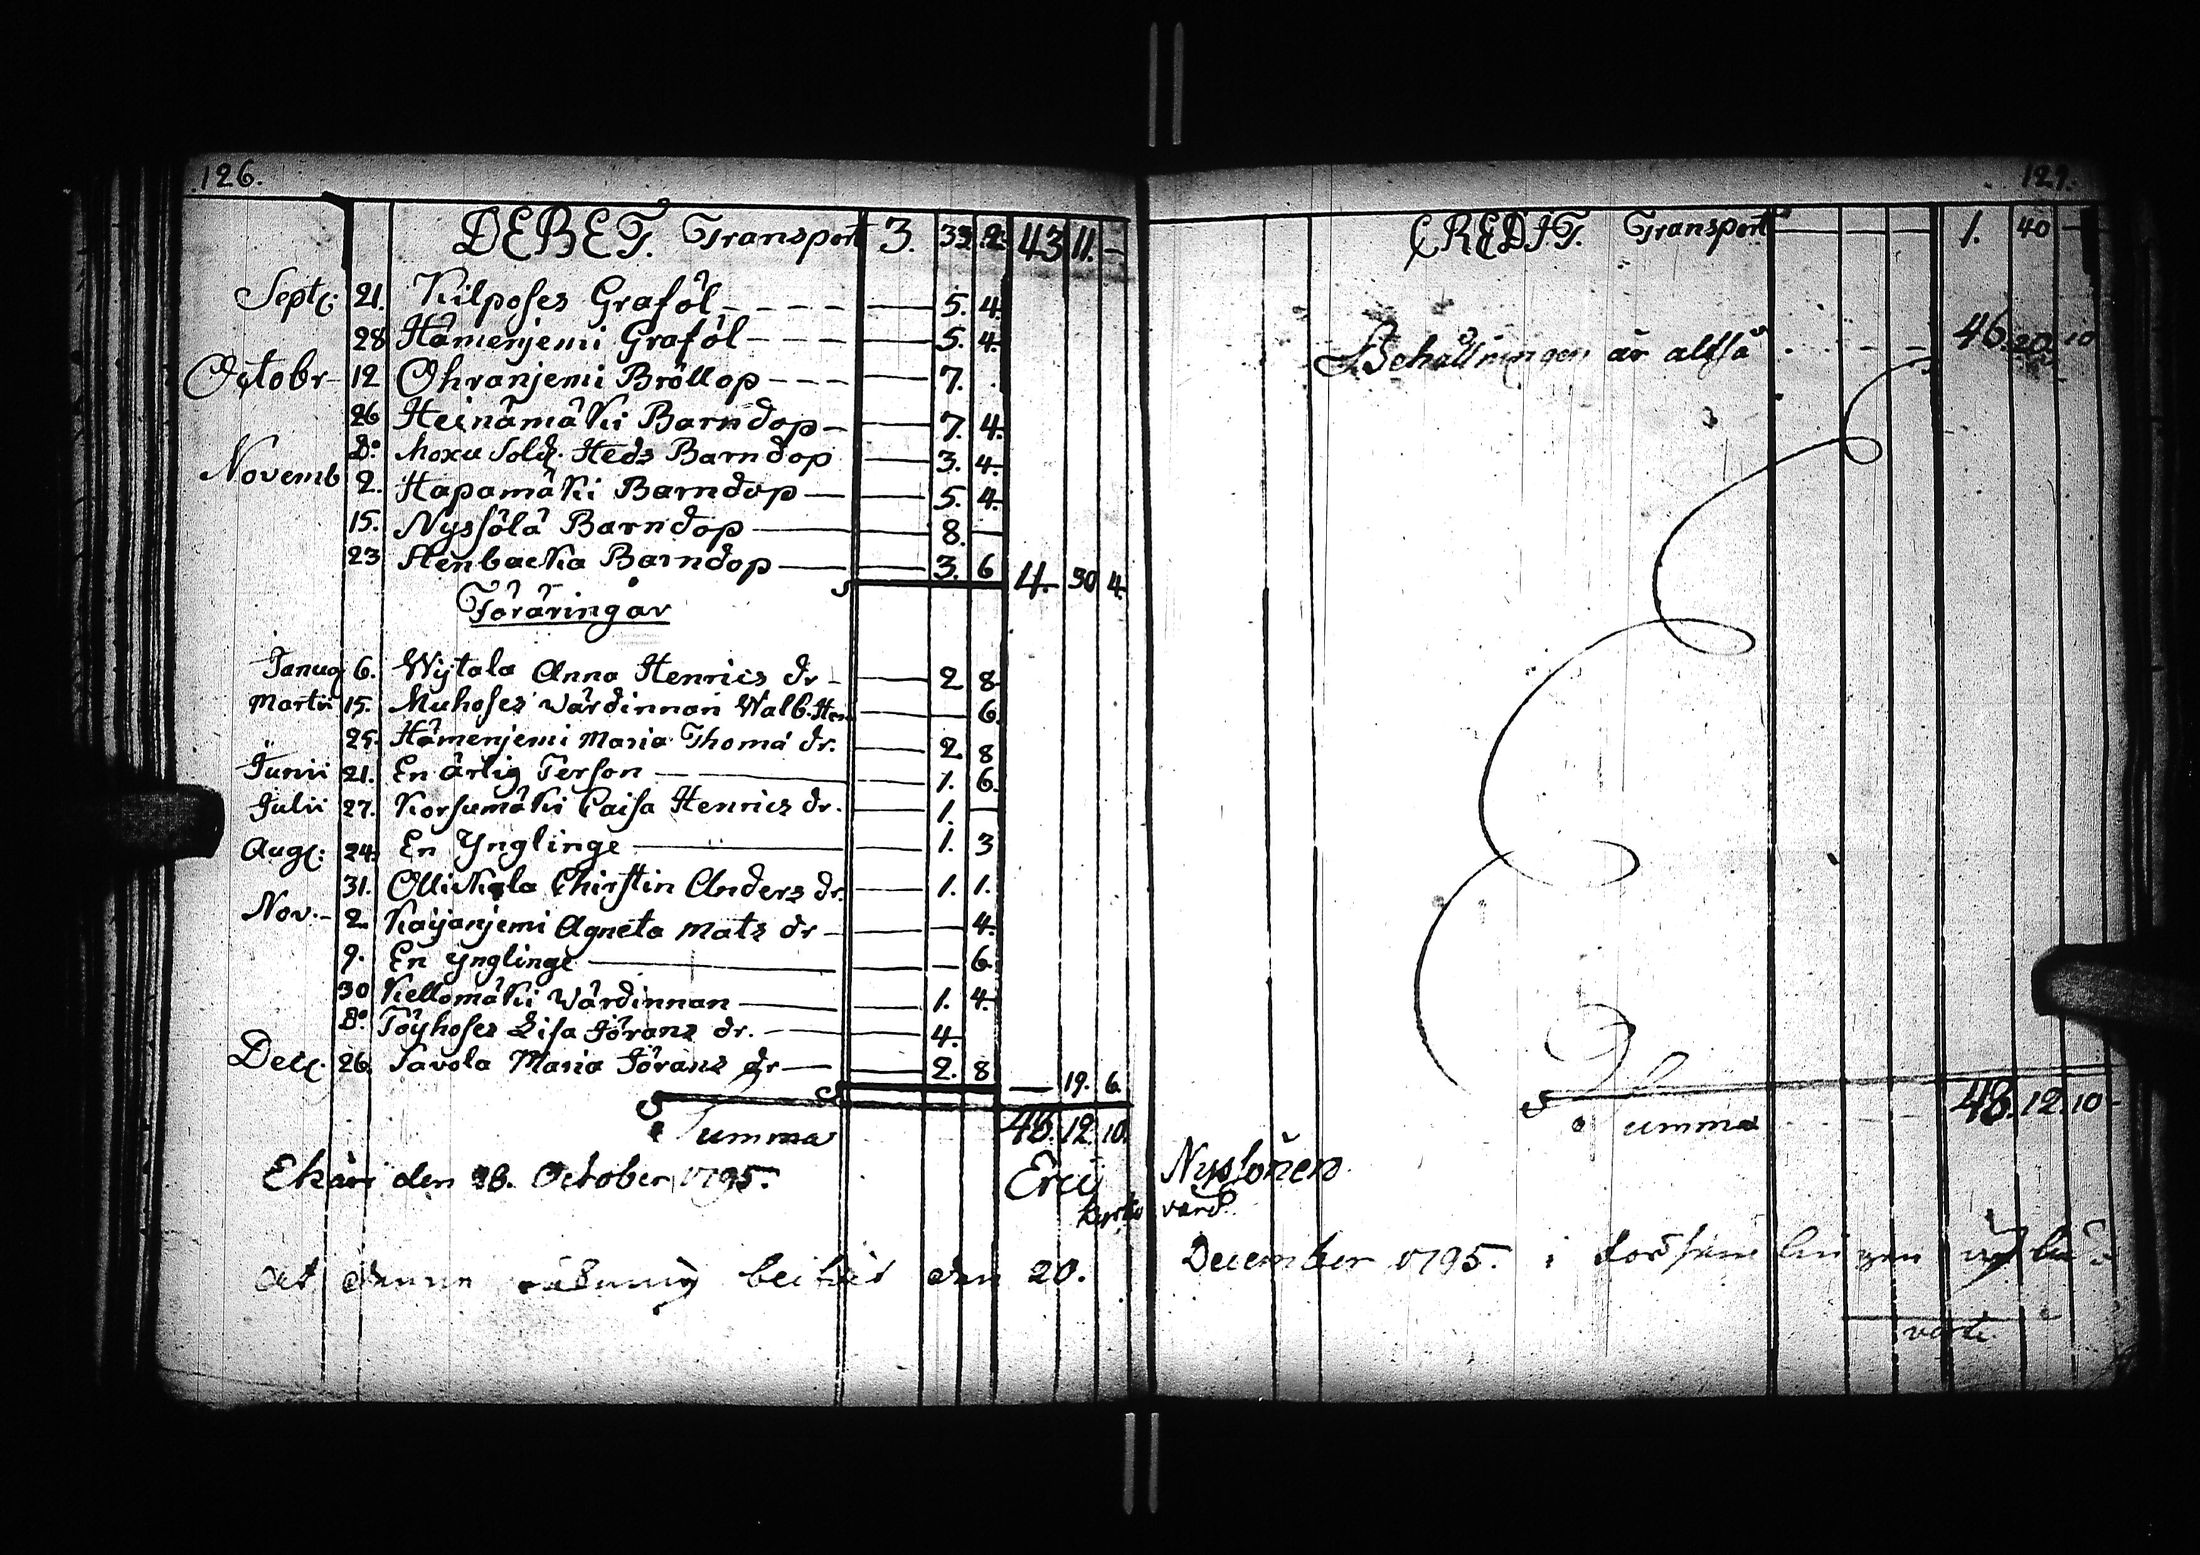 126.
DEBET. Transport 3. 33. 2. 43 11. —
Septr: 21. Kilposes Graföl — 5. 4.
28 Hämenjemi Graföl — 5. 4.
Octobr 12 Ohranjemi Bröllop — 7.
26 Heinämäki Barndop — 7. 4.
Do Moxu Sold. Heds Barndop — 3. 4.
Novemb 2. Hapamäki Barndop — 5. 4.
15. Nyssölä Barndop — 8. —
23 Stenbacka Barndop — 3. 6 4. 30 4.
Föräringar
Januar 6. Wijtala Anna Henrics dr — 2 8
Martii 15. Muhoses Värdinnan Walb. Hen. — 6.
25. Hämenjemi Maria Thoma dr. — 2. 8
Junii 21. En ärlig Person — 1. 6.
Julii 27. Korsumäki Caisa Henrics dr. — 1. —
Aug: 24. En Ynglinge — 1. 3
31. Ollickala Chirstin Anders dr. — 1. 1.
Nov. 2. Kaijanjemi Agneta Mats dr — 4.
9. En Ynglinge — 6.
30 Kellomäki Värdinnan — 1. 4.
Do Töyhoses Lisa Jörans dr. — 4.
Dec. 26. Savola Maria Jörans dr — 2. 8 — 19. 6.
Summa 48. 12. 10.
den 28. October 1795. Eric
Kyrko
At denne den 20.
CREDIT. Transport — 1. 40 —
Behållningen är altså 46. 20. 10
Summa 48. 12. 10
Nyssönen
värd.
December 1795. i
verte.